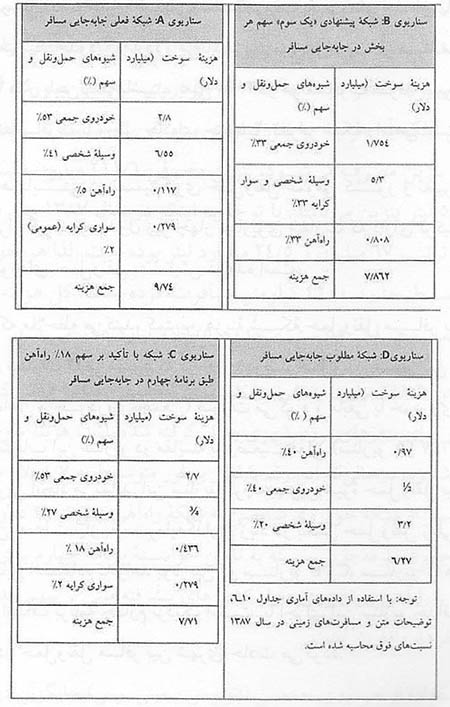 ستاریوی A: شبکهٔ فعلی جابه‌جایی مسافر
شیوه‌های حمل‌ونقل و سهم (٪)
هزینهٔ سوخت (میلیارد دلار)
خودروی جمعی ۵۳٪
۲/۸
وسیلهٔ شخصی ۴۱٪
۶/۵۵
راه‌آهن ۵٪
۰/۱۱۷
سواری کرایه (عمومی) ۲٪
۰/۲۷۹
جمع هزینه
۹/۷۴
ستاریوی B: شبکهٔ پیشنهادی «یک سوم» سهم هر
بخش در جابه‌جایی مسافر
شیوه‌های حمل‌ونقل و سهم (٪)
هزینهٔ سوخت (میلیارد دلار)
خودروی جمعی ۳۳٪
۱/۷۵۴
وسیلهٔ شخصی و سوار
کرایه ۳۳٪
۵/۳
راه‌آهن ۳۳٪
۰/۸۰۸
جمع هزینه
۷/۸۶۲
ستاریوی C: شبکه با تأکید بر سهم ۱۸٪ راه‌آهن
طبق برنامهٔ چهارم در جابه‌جایی مسافر
شیوه‌های حمل‌ونقل و سهم (٪)
هزینهٔ سوخت (میلیارد دلار)
خودروی جمعی ۵۳٪
۲/۷
وسیلهٔ شخصی ۲۷٪
راه‌آهن ۱۸ ٪
۰/۴۳۶
سواری کرایه ۲٪
۰/۲۷۹
جمع هزینه
۷/۷۱
ستاریوی D: شبکهٔ مطلوب جابه‌جایی مسافر
شیوه‌های حمل‌ونقل و سهم ( ٪)
هزینهٔ سوخت (میلیارد دلار)
راه‌آهن ۴۰٪
۰/۹۷
خودروی جمعی ۴۰٪
½
وسیلهٔ شخصی ۲۰٪
۳/۲
جمع هزینه
۶/۲۷
توجه: با استفاده از داده‌های آماری جداول ۱۰ـ۶،
توضیحات متن و مسافرت‌های زمینی در سال ۱۳۸۷
نسبت‌های فوق محاسبه شده است.